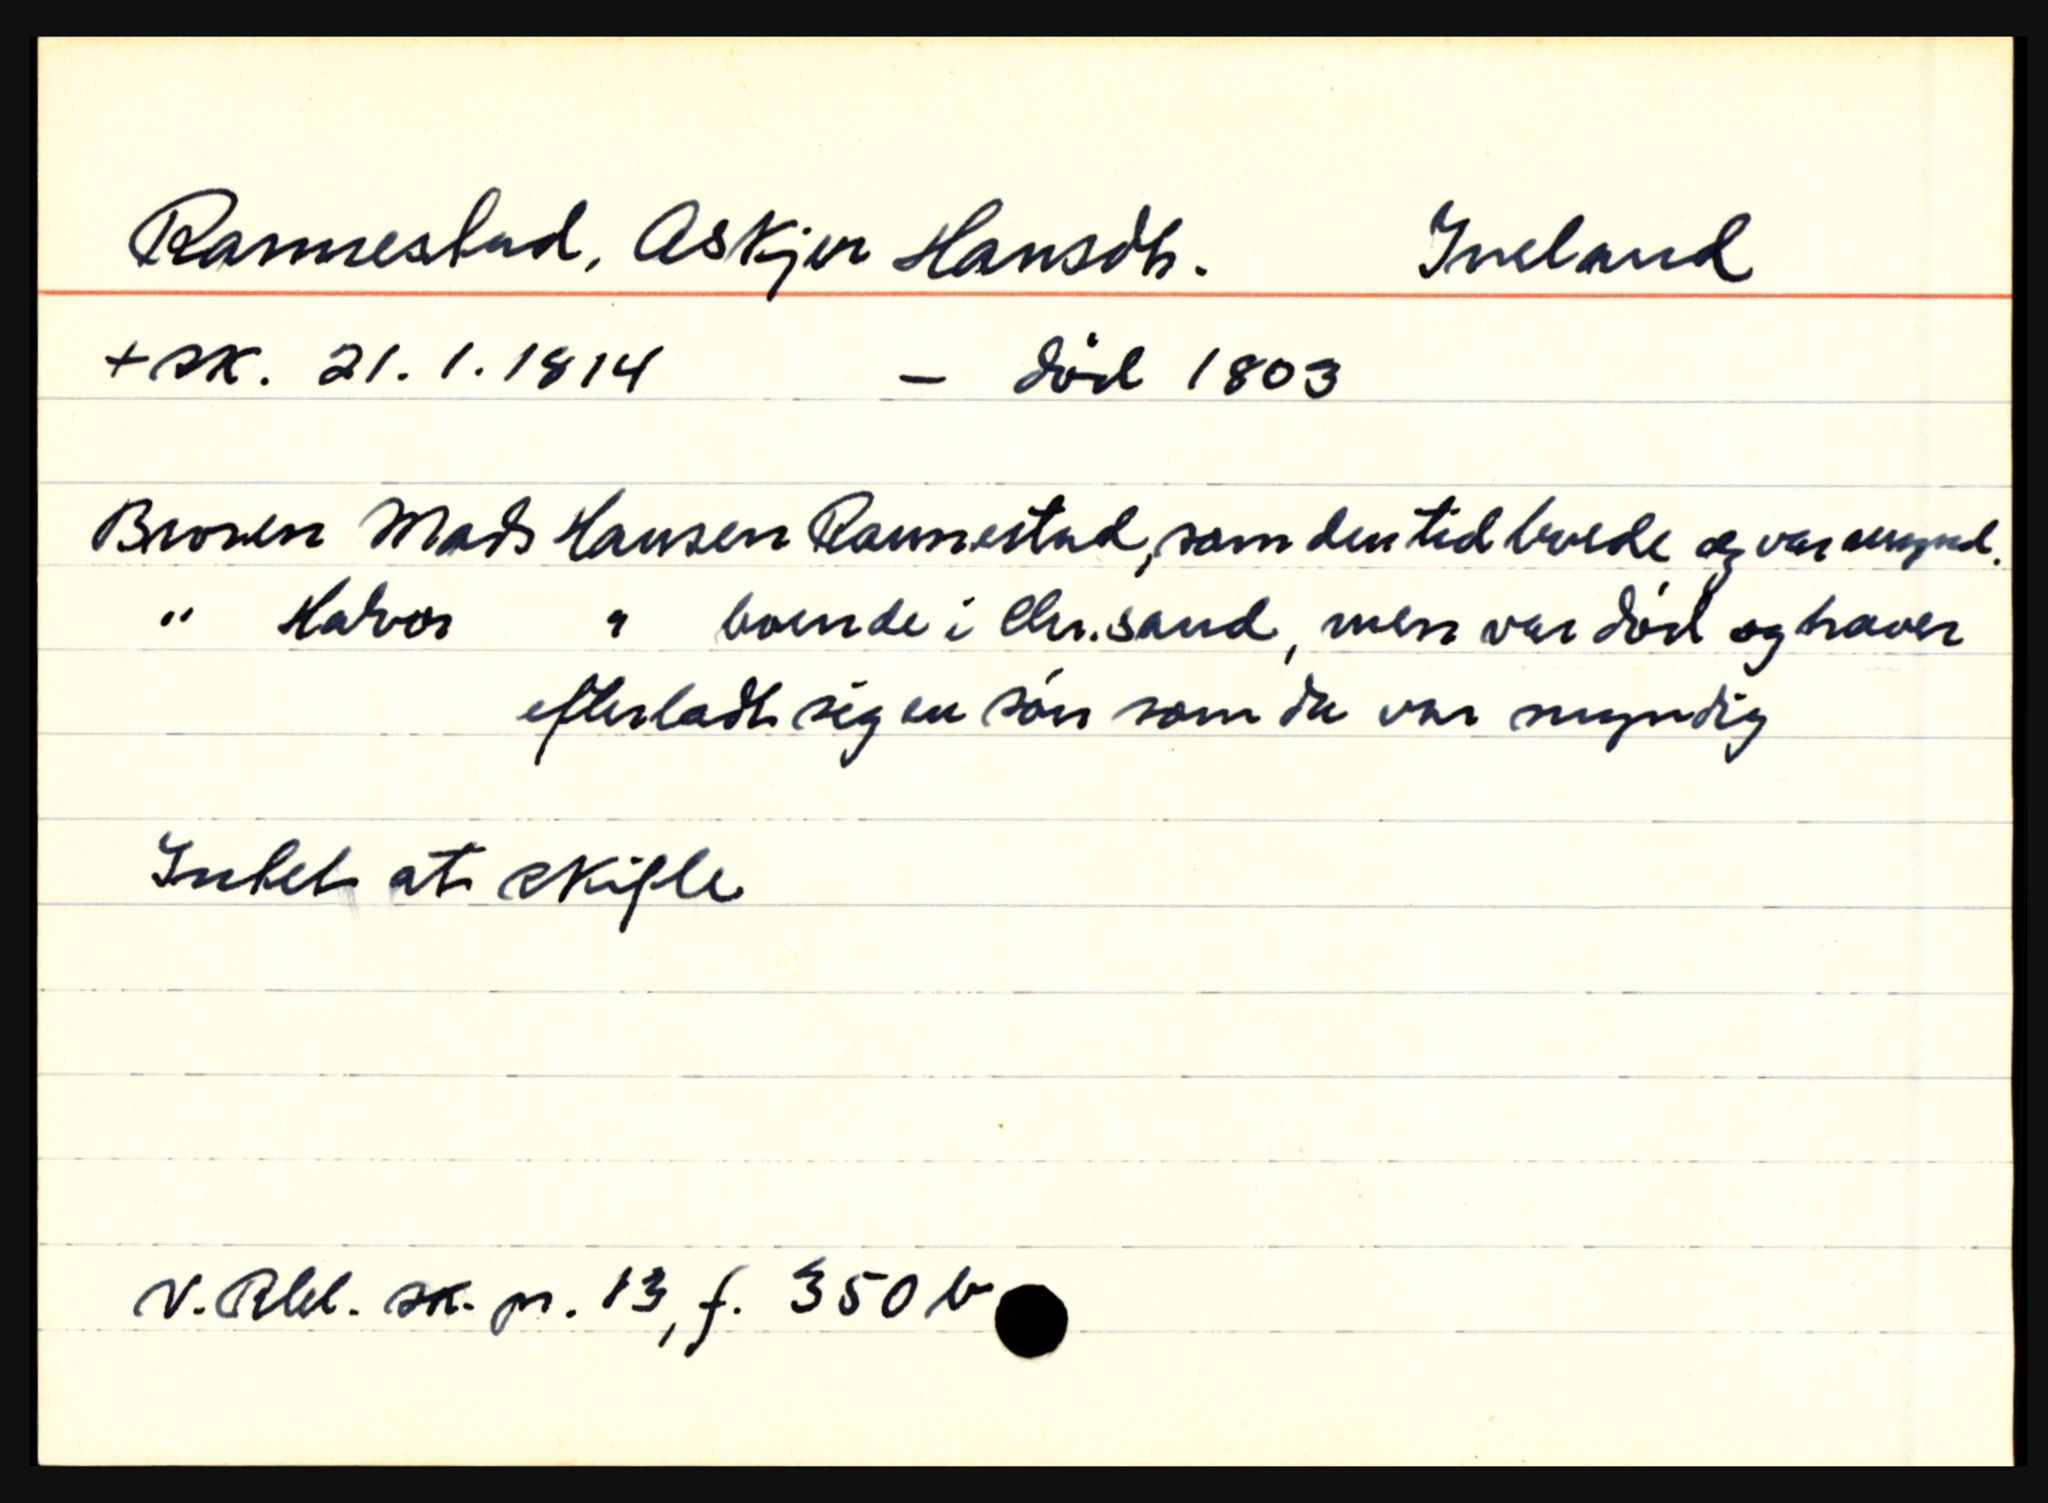 Rannestad, Askjer Hansdt. Iveland
+ sk. 21.1.1814 — død 1803
Broren Mads Hansen Rannestad, som den tid levede og var mynd.
" Halvor " boende i Chr.sand, men var død og haver
efterladt sig en søn som da var myndig
Intet at skifte
N. Rbl. sk. pr. 13, f. 350 b